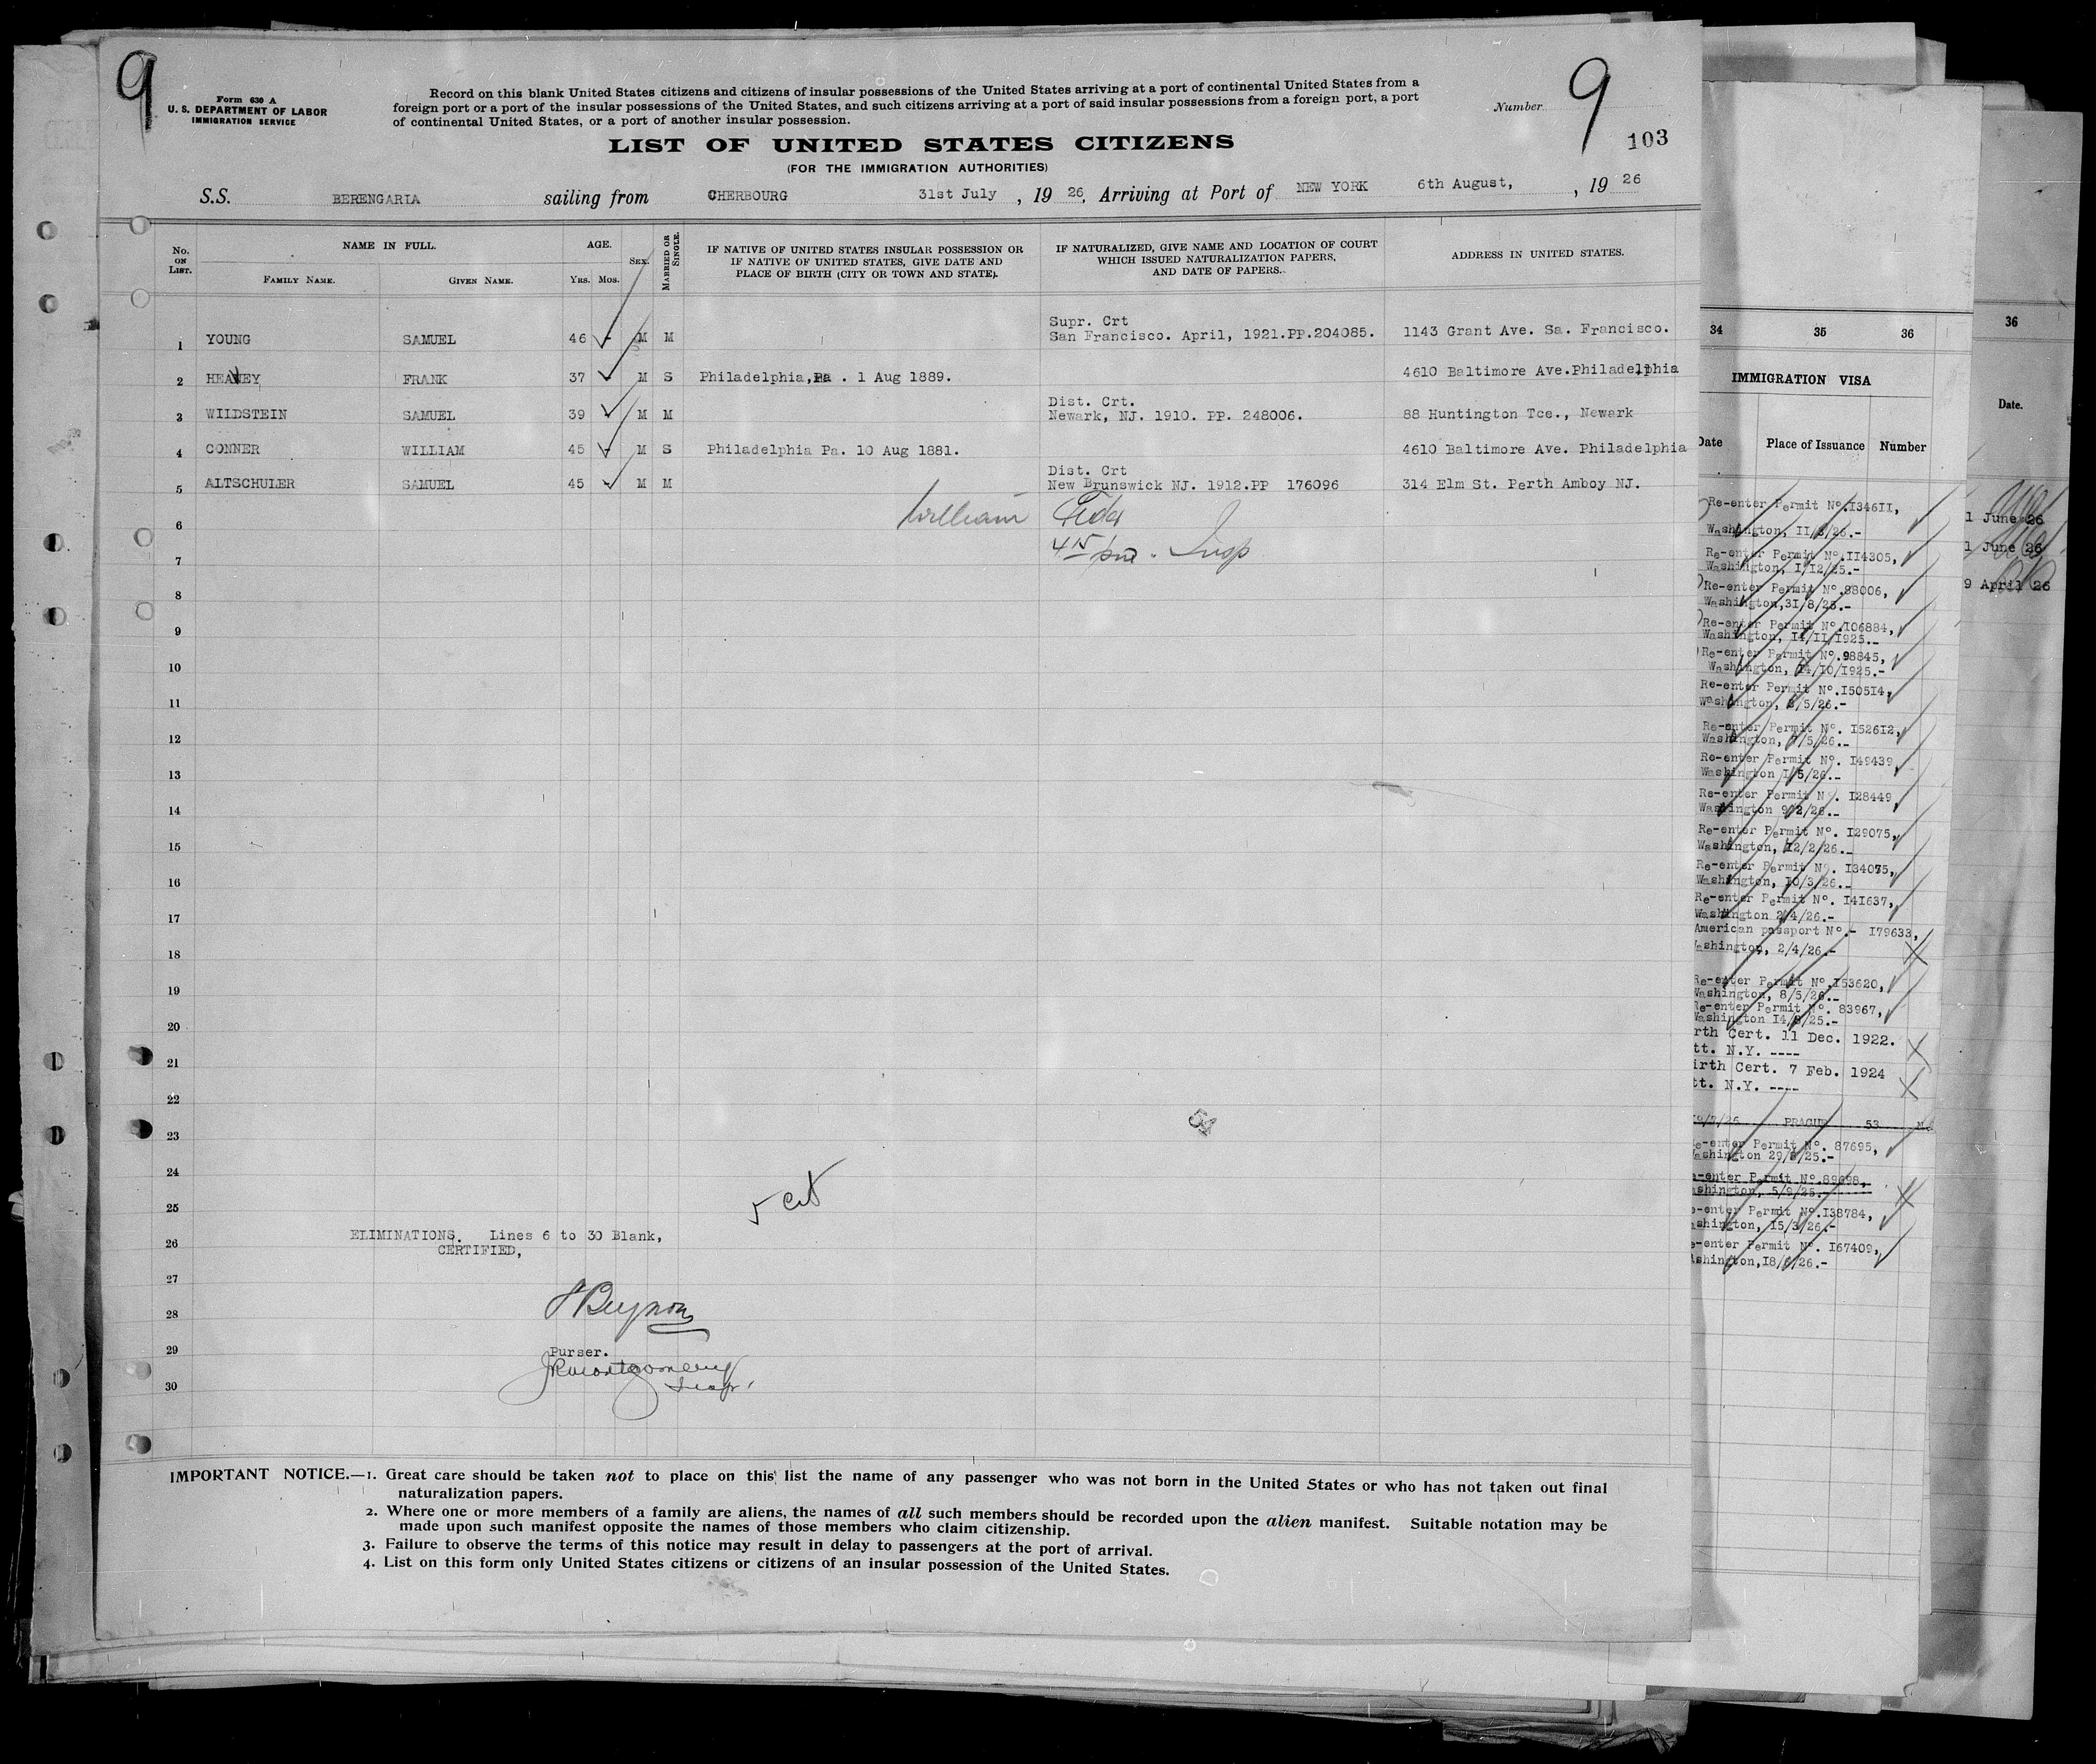 9
Form 630 A
U. S. DEPARTMENT OF LABOR
IMMIGRATION SERVICE
Record on this blank United States citizens and citizens of insular possessions of the United States arriving at a port of continental United States from a
foreign port or a port of the insular possessions of the United States, and such citizens arriving at a port of said insular possessions from a foreign port, a port
of continental United States, or a port of another insular possession.
Number 9
103
LIST OF UNITED STATES CITIZENS
(FOR THE IMMIGRATION AUTHORITIES)
S.S. BERENGARIA sailing from CHERBOURG 31st July, 1926, Arriving at Port of NEW YORK 6th August, , 1926
No. ON LIST. NAME IN FULL. AGE. SEX. MARRIED OR SINGLE. IF NATIVE OF UNITED STATES INSULAR POSSESSION OR IF NATIVE OF UNITED STATES, GIVE DATE AND PLACE OF BIRTH (CITY OR TOWN AND STATE). IF NATURALIZED, GIVE NAME AND LOCATION OF COURT WHICH ISSUED NATURALIZATION PAPERS, AND DATE OF PAPERS. ADDRESS IN UNITED STATES.
FAMILY NAME. GIVEN NAME. YRS. MOS.
Supr. Crt
1 YOUNG SAMUEL 46 - M M San Francisco. April, 1921.PP.204085. 1143 Grant Ave. Sa. Francisco.
2 HEANEY FRANK 37 - M S Philadelphia,Pa . 1 Aug 1889. 4610 Baltimore Ave.Philadelphia
Dist. Crt.
3 WILDSTEIN SAMUEL 39 - M M Newark, NJ. 1910. PP. 248006. 88 Huntington Tce., Newark
4 CONNER WILLIAM 45 - M S Philadelphia Pa. 10 Aug 1881. 4610 Baltimore Ave. Philadelphia
Dist. Crt
5 ALTSCHULER SAMUEL 45 - M M New Brunswick NJ. 1912.PP 176096 314 Elm St. Perth Amboy NJ.
6 William
7 Insp
8
9
10
11
12
13
14
15
16
17
18
19
20
21
22
54
23
24
5 cit
25
ELIMINATIONS. Lines 6 to 30 Blank,
26 CERTIFIED,
27
28
29 Purser.
JRMontgomery
30 Insp.
IMPORTANT NOTICE.—1. Great care should be taken not to place on this list the name of any passenger who was not born in the United States or who has not taken out final
naturalization papers.
2. Where one or more members of a family are aliens, the names of all such members should be recorded upon the alien manifest. Suitable notation may be
made upon such manifest opposite the names of those members who claim citizenship.
3. Failure to observe the terms of this notice may result in delay to passengers at the port of arrival.
4. List on this form only United States citizens or citizens of an insular possession of the United States.
34 35 36
IMMIGRATION VISA
Date Place of Issuance Number
Re-enter Permit No.I34611,
Washington, II/3/26.-
Re-enter Permit No.II4305,
Washington, I/I2/25.-
Re-enter Permit No.88006,
Washington,31/8/25.-
Re-enter Permit No.I06884,
Washington, I4/II/I925.-
Re-enter Permit No.98845,
Washington, I4/I0/I925.-
Re-enter Permit No.I505I4,
Washington, 3/5/26.-
Re-enter Permit No. I526I2,
Washington, 7/5/26.-
Re-enter Permit No. I49439
Washington I/5/26.-
Re-enter Permit No. I28449
Washington 9/2/26.-
Re-enter Permit No. I29075,
Washington, I2/2/26.-
Re-enter Permit No. I34075,
Washington, I0/3/26.-
Re-enter Permit No. I4I637,
Washington 2/4/26.-
American passport No.- I79633,
ashington, 2/4/26.-
Re-enter Permit No.I53620,
Washington, 8/5/26.-
Re-enter Permit No. 83967,
Washington I4/8/25.-
rth Cert. 11 Dec. 1922.
tt. N.Y. ----
irth Cert. 7 Feb. 1924
tt. N.Y. ----
PRAGUE 53
e-enter Permit No. 87695,
ashington 29/8/25.-
e-enter Permit No.89698,
ashington, 5/9/25.-
e-enter Permit No.I38784,
ashington, I5/3/26.-
e-enter Permit No. I67409,
ashington,I8/6/26.-
36
Date.
1 June 26
1 June 26
9 April 26